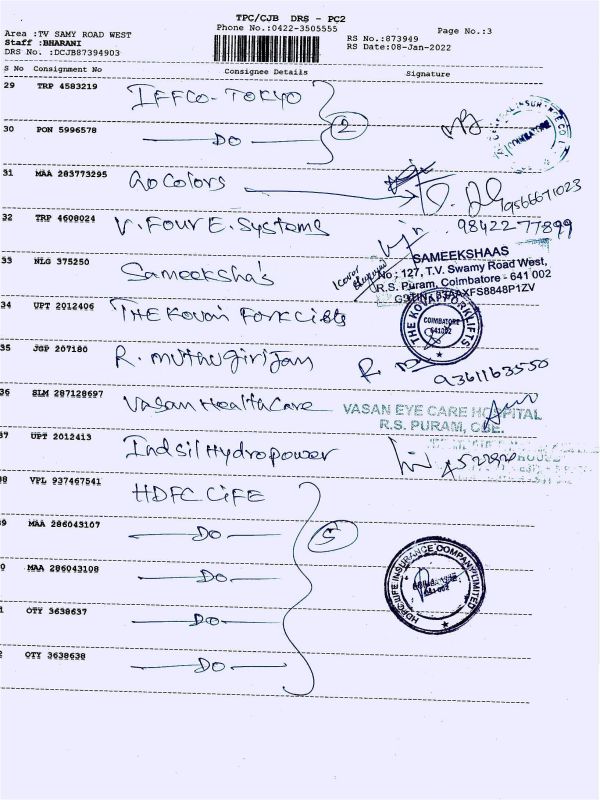 TPC/CJB DRS - PC2
Phone No.:0422-3505555
Page No.:3
Area :TV SAMY ROAD WEST
Staff :BHARANI
DRS No. :DCJB87394903
RS No.:873949
RS Date:08-Jan-2022
S No Consignment No Consignee Details Signature
29 TRP 4583219 IFFCO-TOKYO
30 PON 5996578 DO 2
COIMBATORE
31 MAA 283773295 Go Colors 9566671023
32 TRP 4608024 V. Four E. Systems 98422 77899
33 NLG 375250 Sameeksha's
SAMEEKSHAAS
No : 127, T.V. Swamy Road West,
R.S. Puram, Coimbatore - 641 002
34 UPT 2012406 THE Kovai Forklifts
THE KOVAI FORKLIFTS
COIMBATORE
641002
35 JGP 207180 R. Muthugirijan R 9361163550
36 SLM 287128697 Vasan Health Care
VASAN EYE CARE HOSPITAL
R.S. PURAM, CBE.
37 UPT 2012413 Indsil Hydropower
38 VPL 937467541 HDFC LIFE
39 MAA 286043107 DO 5
0 MAA 286043108 DO
HDFC LIFE INSURANCE COMPANY LIMITED
1 OTY 3638637 DO
2 OTY 3638638 DO